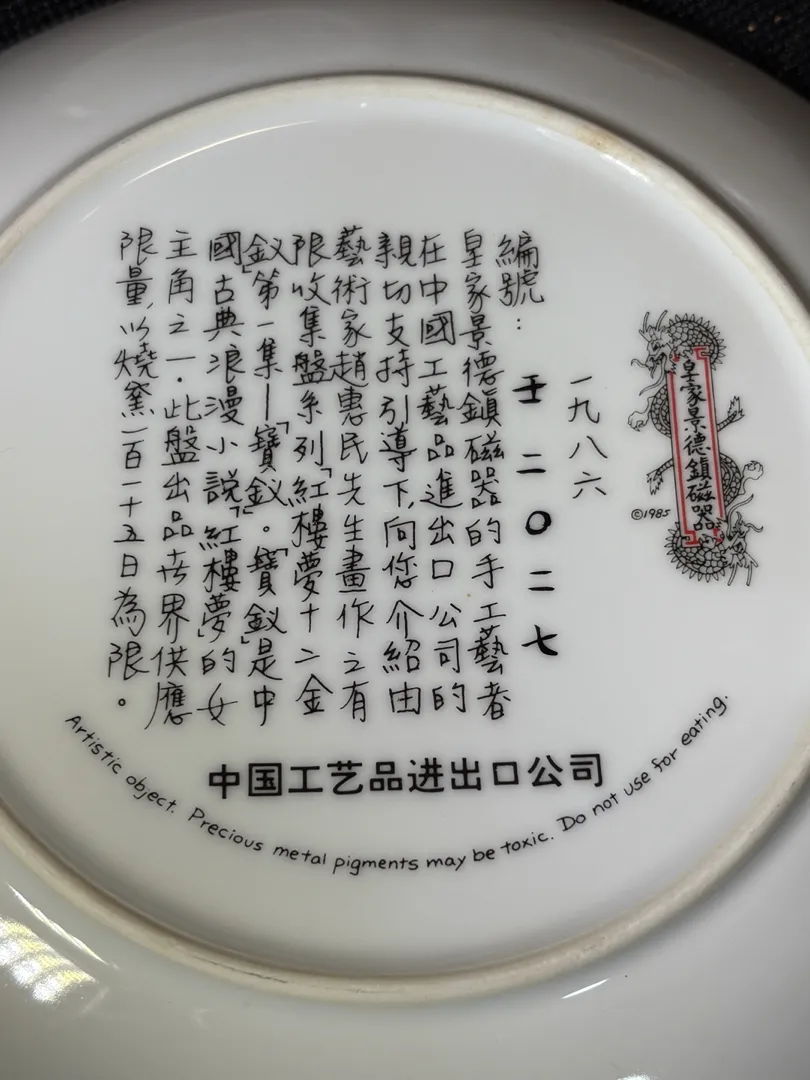 皇家景德鎮磁器
©1985
一九八六
編號：
壬二〇二七
皇家景德鎮磁器的手工藝者
在中國工藝品進出口公司的
親切支持引導下,向您介紹由
藝術家趙惠民先生畫作之有
限收集盤系列「紅樓夢十二金
釵」第一集—「寶釵」。「寶釵」是中
國古典浪漫小說「紅樓夢」的女
主角之一.此盤出品世界供應
限量,以燒窯一百一十五日為限。
中国工艺品进出口公司
Artistic object. Precious metal pigments may be toxic. Do not use for eating.